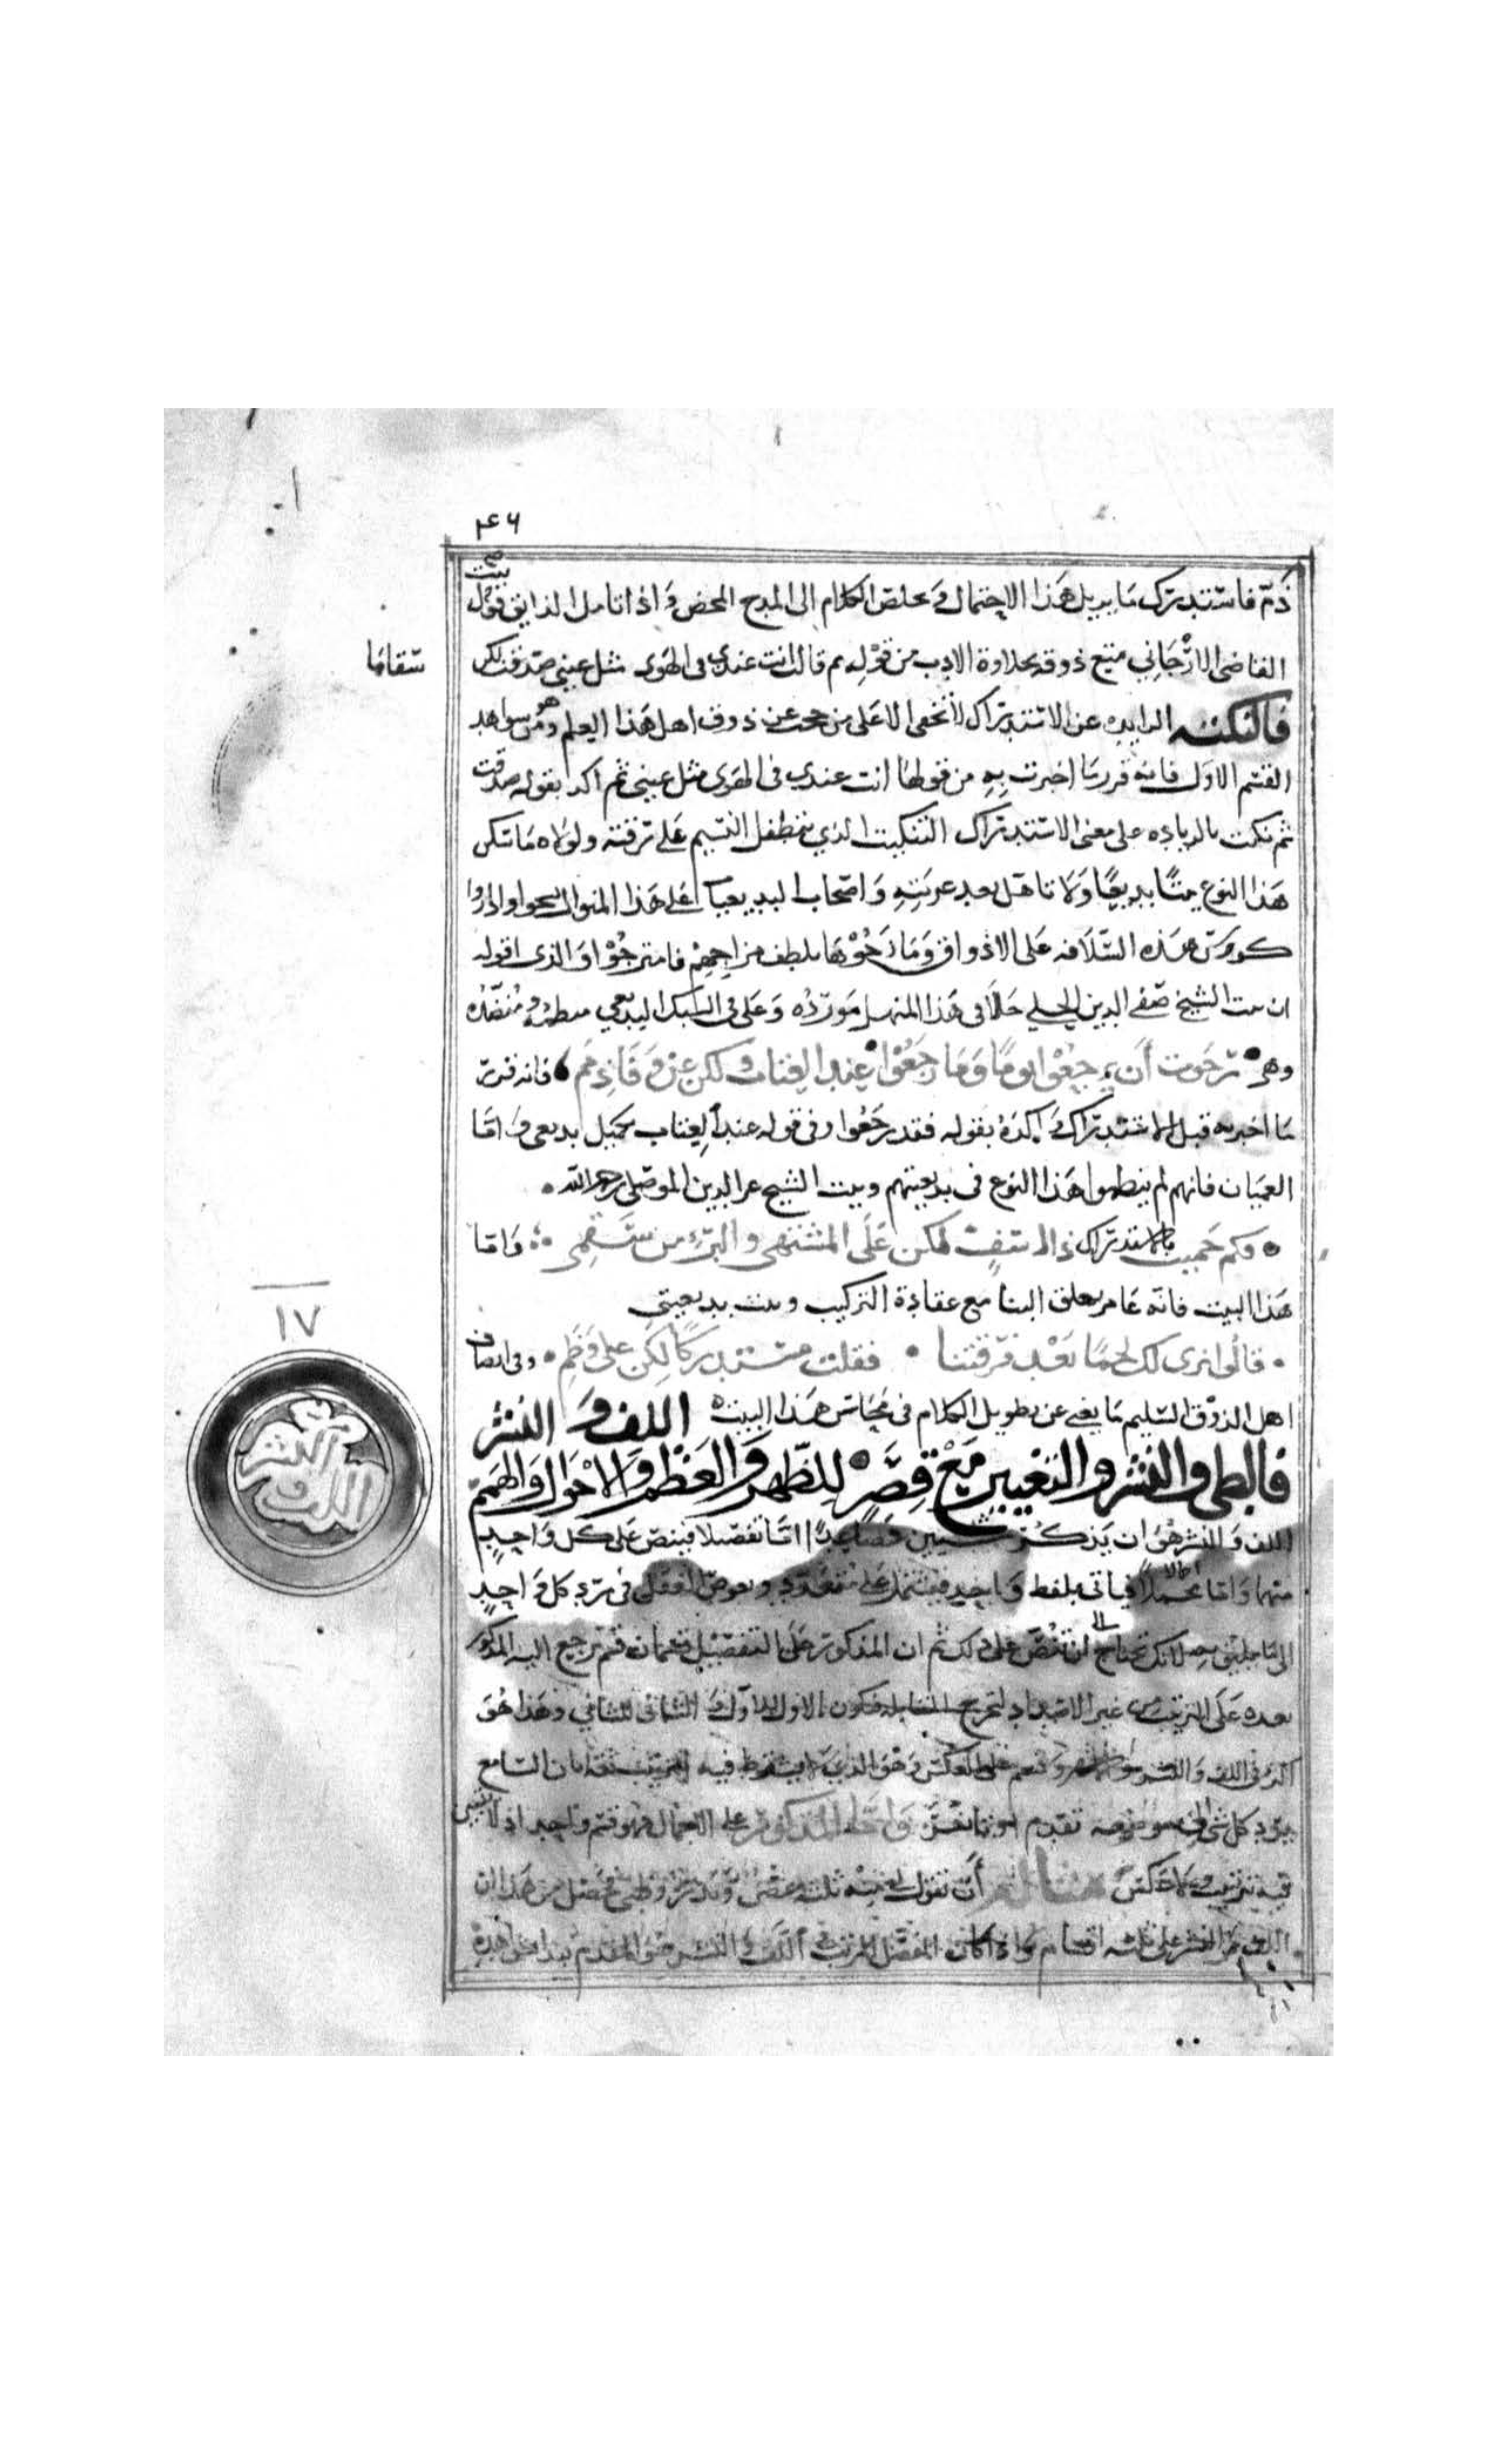 ٤٦
ذم فاستدرك ما يزيل هذا الاحتمال ويخلص الكلام الى المدح المحض واذا تامل الذايق قول بيت
القاضي الارجاني متع ذوقه بحلاوة الادب من قوله ثم قالت انت عندي في الهوى مثل عيني صدقت لكن
سقاما
فالنكتة الزايده عن الاستدراك لا تخفى الا على من حجب عن ذوق اهل هذا العلم وهو من شواهد
القسم الاول فانه قرر ما اخبرت به من قولها انت عندي في الهوى مثل عيني ثم اكد بقوله صدقت
ثم نكت بالزياده على معنى الاستدراك التنكيت الذي يتطفل النسيم على رقته ولولاه ما سكن
هذا النوع بيتا بديعا ولا تاهل بعد عربته واصحاب البديعيات على هذا المنوال نسجوا واداروا
كووس هذه السلافه على الاذواق وما زجوها بلطف مزاجهم فامتزجوا والذي اقوله
ان بيت الشيخ صفي الدين الحلي حلا في هذا المنهل مورده وعلى في السبك البديعي منضده
وهو رجوت أن يرجعوا يوما وما رجعوا عند العتاب ولكن عن وفا ذمم فانه قرر
ما اخبر به قبل الاستدراك واكده بقوله فقد رجعوا وفي قوله عند العتاب تكميل بديعي واما
العميان فانهم لم ينظموا هذا النوع في بديعيتهم وبيت الشيخ عز الدين الموصلي رحمه الله
وكم حميت بالاستدراك ذا اسف لكن على المشتهى والبرء من سقمي واما
هذا البيت فانه عامر بغلق البنا مع عقادة التركيب وبيت بديعيتي
قالوا نرى لك لحما بعد فرقتنا فقلت مستدركا لكن على وضم وفي انصاف
اهل الذوق السليم ما يغني عن تطويل الكلام في محاسن هذا البيت اللف والنشر
١٧
اللف والنشر
فالطي والنشر والتغيير مع قصر للظهر والعظم والاحوال والهمم
اللف والنشر هو ان يذكر شيئين فصاعدا اما تفصيلا فينص على كل واحد
منهما واما اجمالا فياتي بلفظ واحد يشتمل على متعدد وتفوض العقل في رد كل واحد
الى ما يليق به لا انك تحتاج الى ان تنص على ذلك ثم ان المذكور على التفصيل قسمان قسم يرجع اليه المذكور
بعده على الترتيب من غير الاضداد لتخرج المقابله فيكون الاول للاول والثاني للثاني وهذا هو
وقسم على العكس وهو الذي لا يشترط فيه الترتيب ثقة بان السامع
يرد كل شي الى موضعه تقدم او تاخر واما المذكور على الاجمال فهو قسم واحد اذ لا يتبين
فيه ترتيب ولا عكس مثاله أن تقول
اللف والنشر على ثلثة اقسام واذا كان المفصل المرتب في اللف والنشر هو المقدم